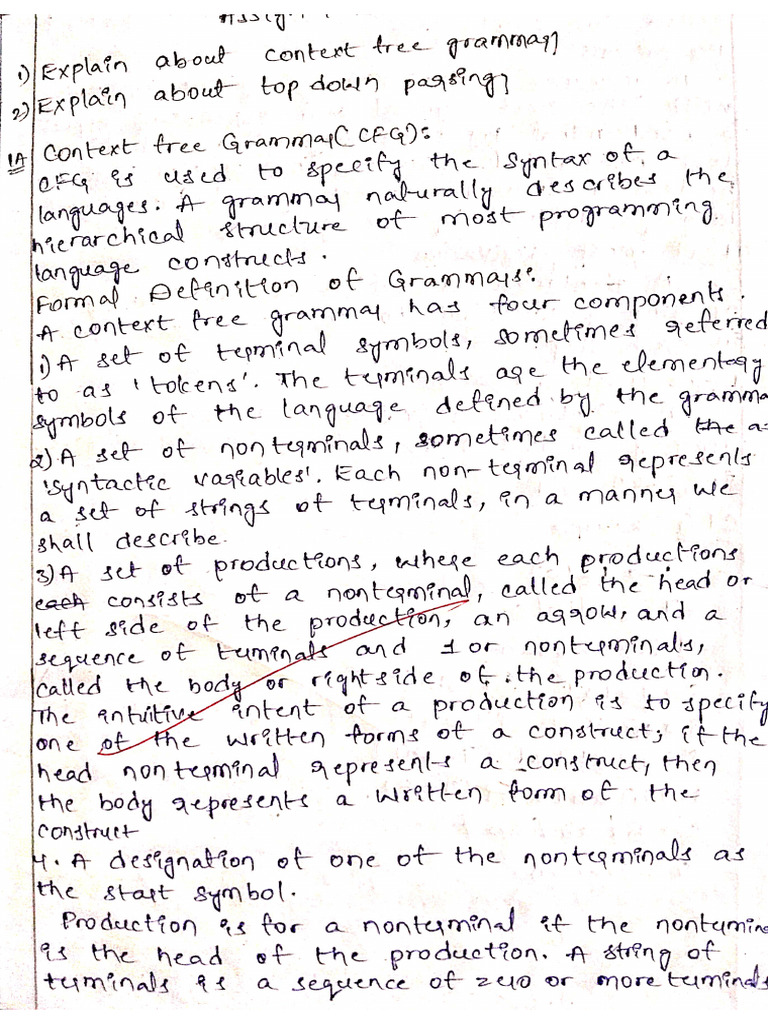 1) Explain about context free grammar?
2) Explain about top down parsing?
1A Context free Grammar(CFG):
CFG is used to specify the syntax of a
languages. A grammar naturally describes the
hierarchical structure of most programming
language constructs.
Formal Definition of Grammars:
A context free grammar has four components.
1) A set of terminal symbols, sometimes referred
to as 'tokens'. The terminals are the elementary
symbols of the language defined by the gramma
2) A set of nonterminals, sometimes called the a
'syntactic variables'. Each non-terminal represents
a set of strings of terminals, in a manner we
shall describe.
3) A set of productions, where each productions
each consists of a nonterminal, called the head or
left side of the production, an arrow, and a
sequence of terminals and 1 or nonterminals,
called the body or rightside of the production.
The intuitive intent of a production is to specify
one of the written forms of a construct; if the
head nonterminal represents a construct, then
the body represents a written form of the
construct
4. A designation of one of the nonterminals as
the start symbol.
Production is for a nonterminal if the nontermina
is the head of the production. A string of
terminals is a sequence of zero or more terminals